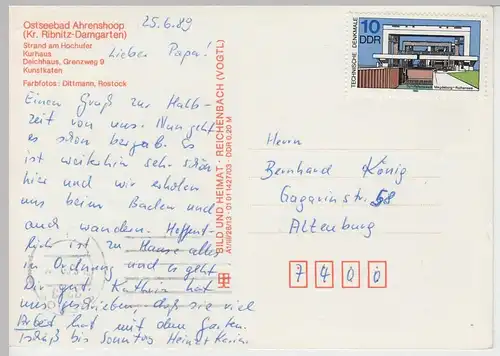 Ostseebad Ahrenshoop
(Kr. Ribnitz-Damgarten)
Strand am Hochufer
Kurhaus
Deichhaus, Grenzweg 9
Kunstkaten
Farbfotos: Dittmann, Rostock
25.6.89
Lieber Papa!
Einen Gruß zur Halb-
zeit von uns. Nun geht
es schon bergab. Es
ist weiterhin sehr schön
hier und wir erholen
uns beim Baden und
auch wandern. Hoffent-
lich ist zu Hause alles
in Ordnung und es geht
Dir gut. Kathrin hat
uns geschrieben, daß sie viel
Arbeit hat mit dem Garten.
bis Sonntag Heiner Karin
BILD UND HEIMAT · REICHENBACH (VOGTL)
A1/III/26/13 · 01 01 1427/03 · DDR 0,20 M
TECHNISCHE DENKMALE
10
DDR
Magdeburg-Rothensee
Herrn
Bernhard König
Gagarinstr. 58
Altenburg
7400